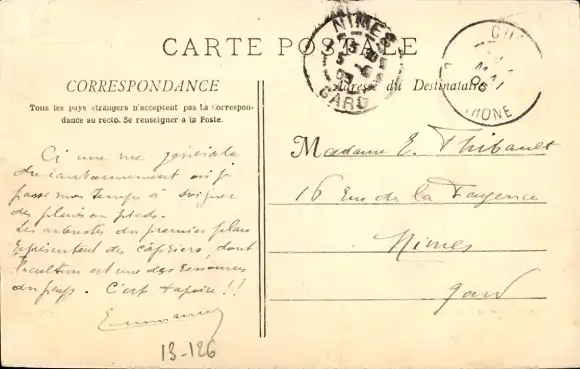 CARTE POSTALE
CORRESPONDANCE
Tous les pays étrangers n'acceptent pas la Correspon-
dance au recto. Se renseigner à la Poste.
Adresse du Destinataire
NIMES
GARD
MAI
05
RHONE
Ci une vue générale
du cantonnement où je
passe mon temps à soigner
des pieds
Les arbustes du premier plan
représentent des câpriers, dont
la culture est une des ressources
du pays. C'est tapoire !!
Emmanuel
Madame E. Thibault
16 Rue de la Fayence
Nimes
Gard
13-126